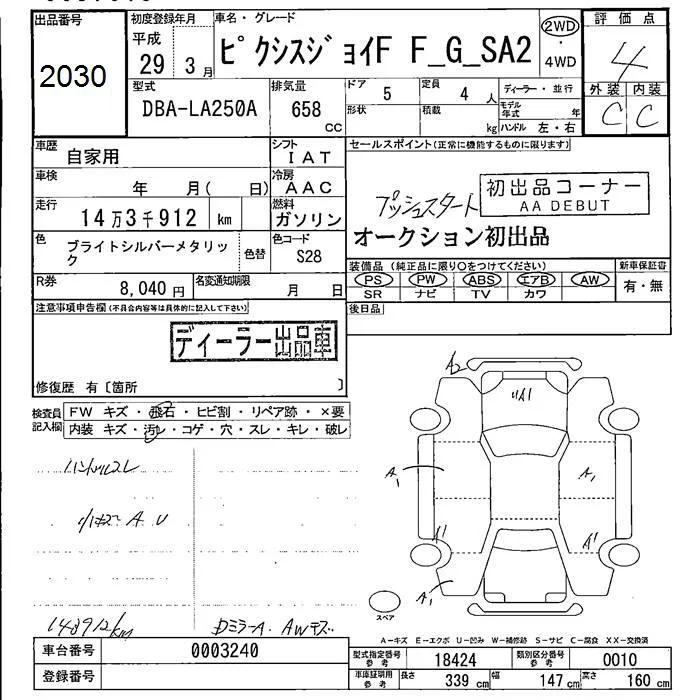 出品番号
2030
初度登録年月
平成
29 3月
車名・グレード
ピクシスジョイF F_G_SA2
2WD
・
4WD
評価点
4
外装 内装
C C
型式
DBA-LA250A
排気量
658
CC
ドア 5
定員 4 人
形状
積載 kg
ディーラー・並行
モデル年式 年
ハンドル 左・右
車歴
自家用
シフト
IAT
車検
年 月( 日)
冷房
AAC
走行
14万3千912 km
燃料
ガソリン
色
ブライトシルバーメタリック
色替
色コード
S28
R券
8,040円
名変通知期限
月 日
セールスポイント(正常に機能するものに限ります)
プッシュスタート
初出品コーナー
AA DEBUT
オークション初出品
装備品(純正品に限り○をつけてください)
PS PW ABS エアB AW
SR ナビ TV カワ
新車保証書
有・無
後日品
注意事項申告欄(不具合内容等は具体的に記入して下さい)
ディーラー出品車
修復歴 有〔箇所 〕
検査員記入欄
FW キズ・飛石・ヒビ割・リペア跡・×要
内装 キズ・汚レ・コゲ・穴・スレ・キレ・破レ
ハンドルスレ
A U
148912km
DミラーA. AWキズ.
A2
A1
A1
A1
A1
A1
A1
スペア
A-キズ E-エクボ U-凹み W-補修跡 S-サビ C-腐食 XX-交換済
車台番号
0003240
登録番号
型式指定番号
参考
18424
類別区分番号
参考
0010
車庫証明用
参考
長さ 339 cm
幅 147 cm
高さ 160 cm